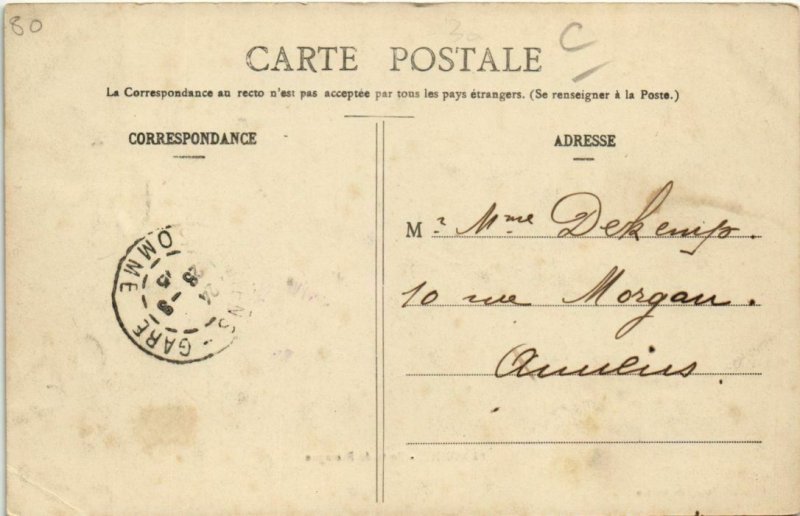 80
C
CARTE POSTALE
La Correspondance au recto n'est pas acceptée par tous les pays étrangers. (Se renseigner à la Poste.)
CORRESPONDANCE
ADRESSE
M r. Mme Dekemp.
10 rue Morgan.
Amiens.
GARE
OMME